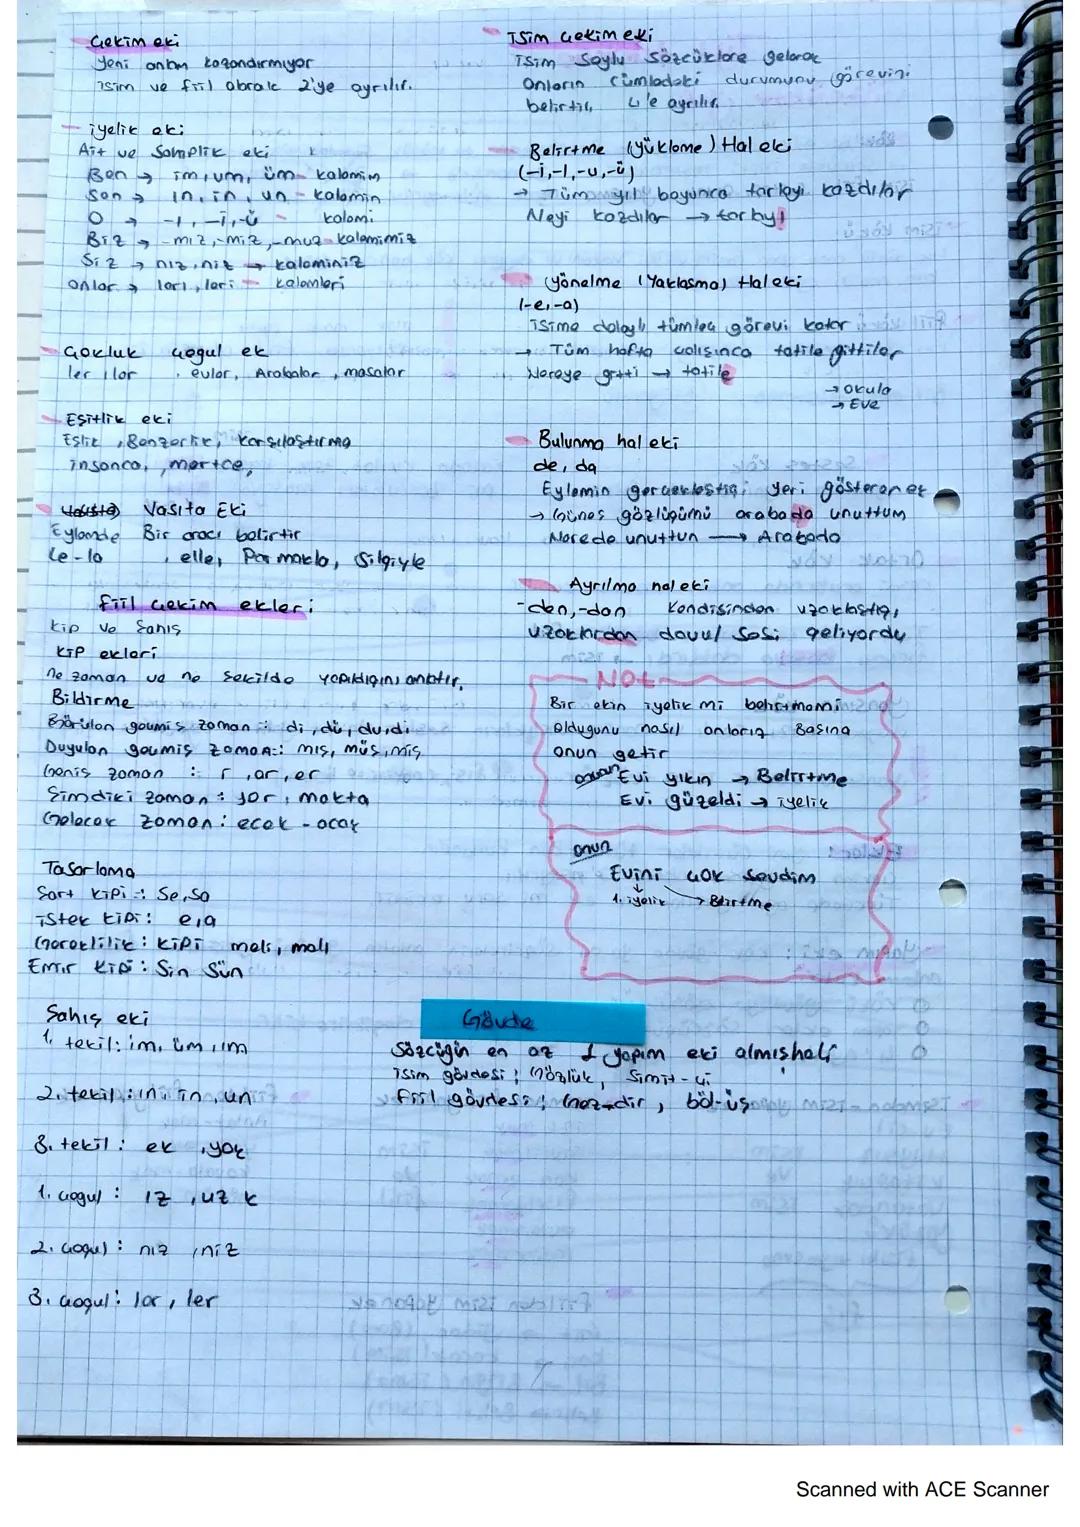 Çekim eki
Yeni anlam kazandırmıyor
isim ve fiil olarak 2'ye ayrılır.
iyelik eki
Ait ve Sahiplik eki
Ben → im, um, üm - kalemim
Sen → in, ın, un - kalemin
O → -ı, -i, -ü - kalemi
Biz → -mız, -miz, -muz - kalemimiz
Siz → nız, niz → kaleminiz
onlar → ları, leri - kalemleri
Çokluk çoğul ek
ler, lar, evler, Arabalar, masalar
Eşitlik eki
Eşlik, Benzerlik, Karşılaştırma
insanca, mertce,
Vasıta Eki
Eylemde Bir aracı belirtir
le - la, elle, Parmakla, Silgiyle
fiil çekim ekleri
Kip ve Şahıs
Kip ekleri
ne zaman ve ne şekilde yapıldığını anlatır.
Bildirme
Görülen geçmiş zaman : di, dü, du, dı
Duyulan geçmiş zaman : mış, müş, miş
Geniş zaman : r, ar, er
Şimdiki zaman : yor, makta
Gelecek zaman : ecek - acak
Tasarlama
Şart kipi : Se, Sa
istek kipi : e, a
Gereklilik : kipi meli, malı
Emir kipi : Sin Sün
Şahıs eki
1. tekil : im, üm, ım
2. tekil : in, ın, un
3. tekil : ek, yok
1. çoğul : ız, uz k
2. çoğul : nız, niz
3. çoğul : lar, ler
isim çekim eki
isim Soylu Sözcüklere gelerek
Onların cümledeki durumunu görevini
belirtir, 4'e ayrılır.
Belirtme (yükleme) Hal eki
(-i, -ı, -u, -ü)
→ Tüm yıl boyunca tarlayı kazdılar
Neyi kazdılar → tarlayı
yönelme (Yaklaşma) Hal eki
(-e, -a)
isime dolaylı tümleç görevi katar
→ Tüm hafta çalışınca tatile gittiler
Nereye gitti → tatile
→ okula
→ Eve
Bulunma hal eki
de, da
Eylemin gerçekleştiği yeri gösteren ek
→ Güneş gözlüğümü arabada unuttum
Nerede unuttun → Arabada
Ayrılma hal eki
-den, -dan Kendisinden uzaklaştığı,
uzaklardan davul Sesi geliyordu
NOT
Bir ekin iyelik mi belirtme mi
Olduğunu nasıl anlarız Başına
onun getir
onun Evi yıkın → Belirtme
Evi güzeldi → iyelik
onun
Evini çok Sevdim
1. iyelik → Belirtme
Gövde
Sözcüğün en az 1 yapım eki almış hali
isim gövdesi ; Gözlük, Simit - çi
fiil gövdesi ; Gez-dir, böl-üş
Scanned with ACE Scanner